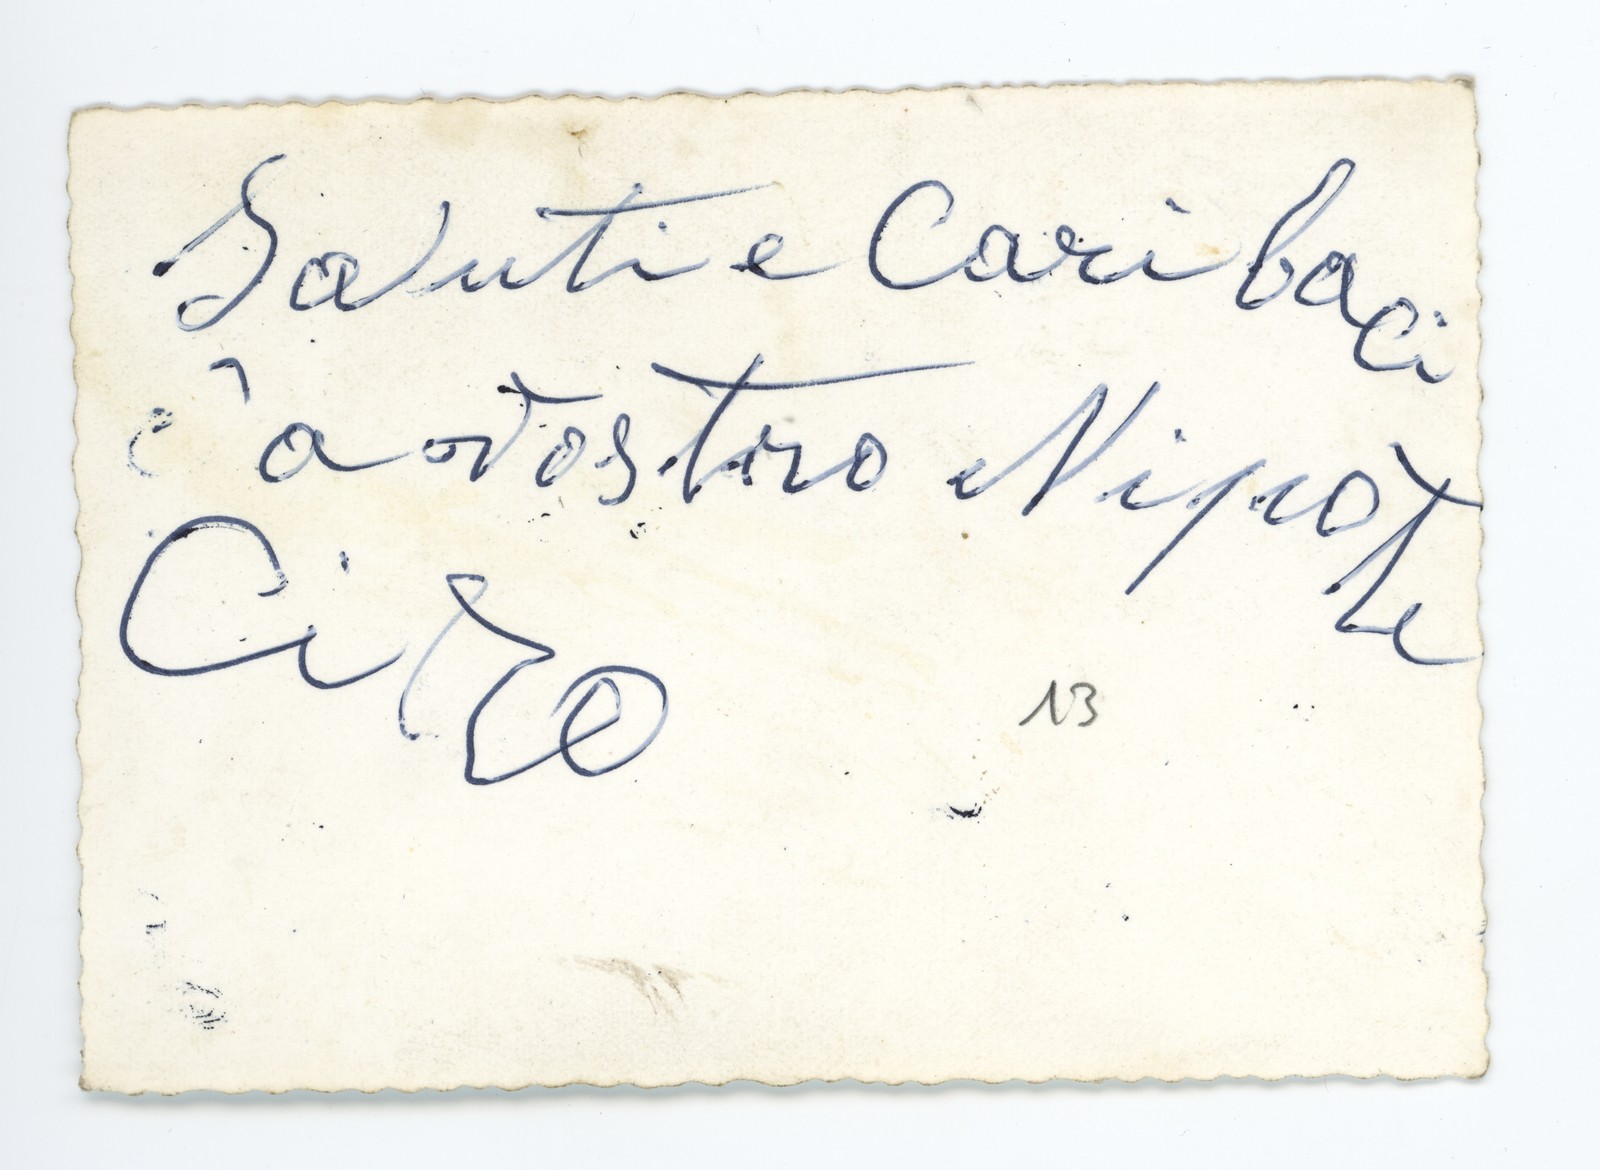 Saluti e Cari baci
a vostro Nipote
Ciro
13